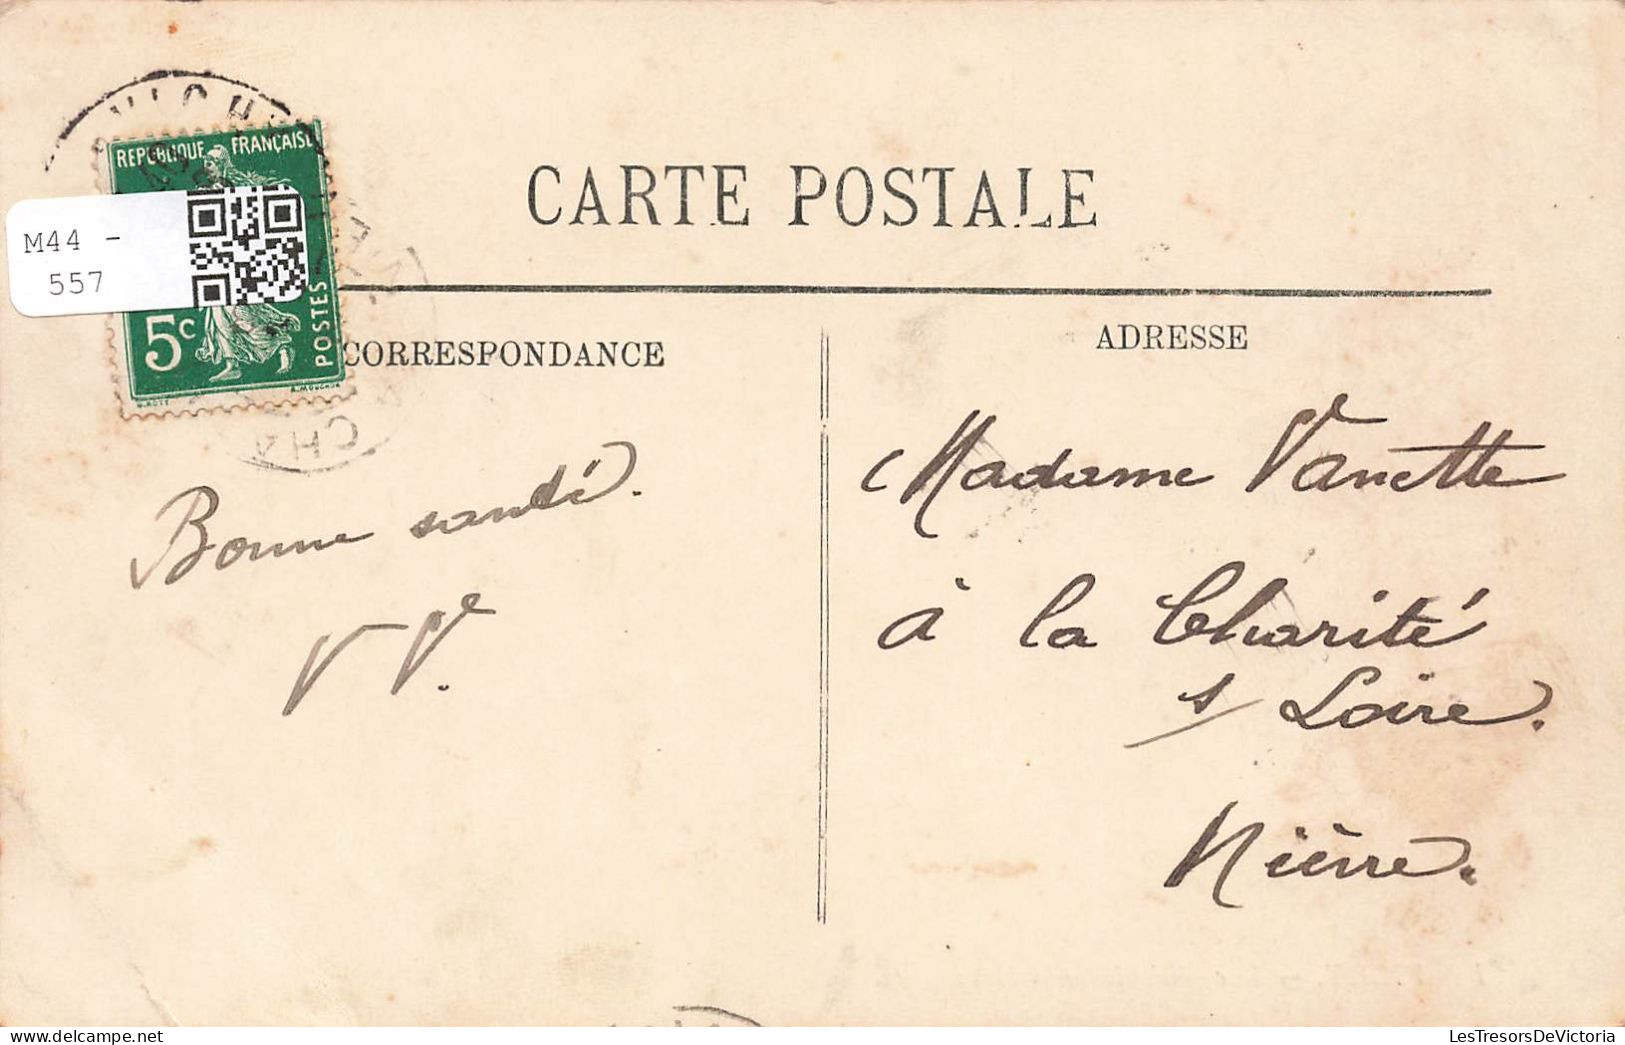 CARTE POSTALE
REPUBLIQUE FRANÇAISE
M44 -
557
5c
POSTES
CORRESPONDANCE
ADRESSE
CHA
Bonne santé.
V Ve.
Madame Vanette
à la Charité
s/ Loire.
Nièvre.
LesTresorsDeVictoria